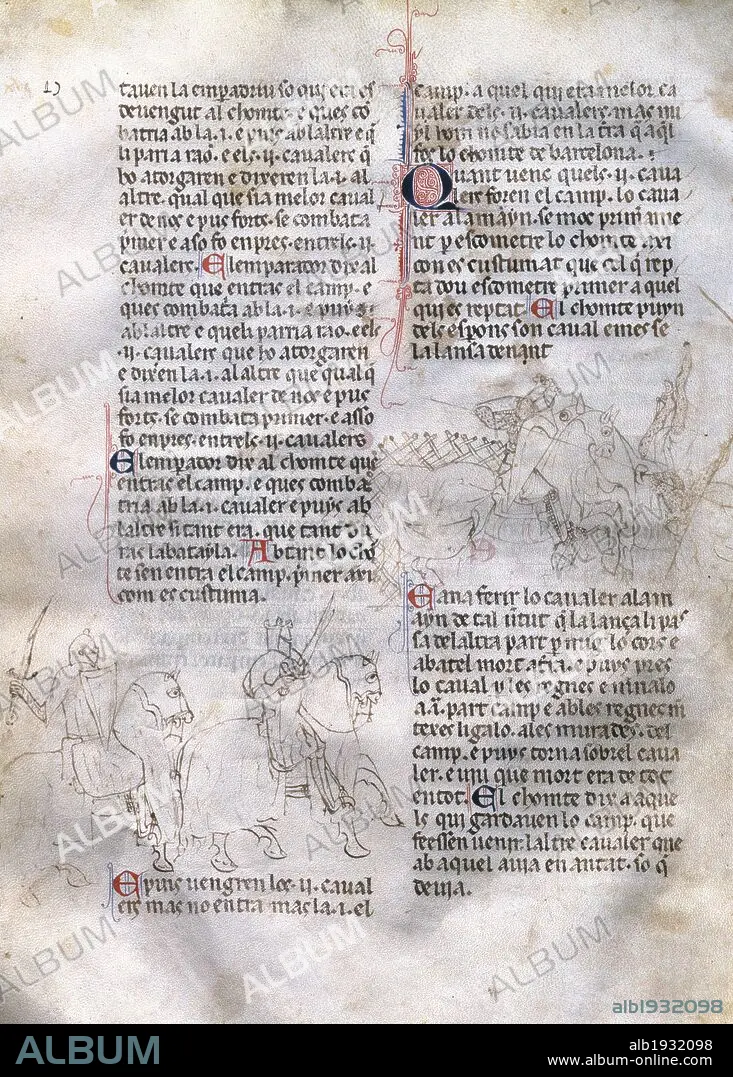 tauen la emperadriu so quí era es
deuengut al chomte. e ques cō
batria ab la .i. e puys ab laltre e q̄
li paria rao. e els .ij. caualers q̄
ho atorgaren e dixeren la .i. al
altre. qual que sia melor caual
er de nos e pus forts. se combata
primer e aso fo en pres. entrels .ij.
caualers. El emparador dix al
chomte que entras el camp. e
ques combata ab la .i. e puys
ab laltre e que li parria rao. e els
.ij. caualers que ho atorgaren
e dixen la .i. al altre que qual q̄
sia melor caualer de nos e pus
forts. se combata primer. e asso
fo en pres. entrels .ij. caualers
El emperador dix al chomte que
entras el camp. e ques comba
tria ab la .i. caualer e puys ab
laltre si tant era. que tant du
ras la batayla. Ab tant lo chō
te sen entra el camp. p̄mer axi
com es custuma.
E puis uengren los .ij. caual
ers mas no entra mas la .i. el
camp. a quel qui era melor ca
ualer dels .ij. caualers. mas nu
yl hom no sabia en la tr̄a q̄ aq̄l
fos lo chomte de barcelona.
Quant uenc quels .ij. caua
lers foren el camp. lo caua
ler alamayn. se moc primerame
nt p̄ escometre lo chomte. axi
con es custumat que cel q̄ rep
ta dou escometre primer a quel
qui es reptat. El chomte puyn
dels esperons son caual e mes se
la lansa denant
E ana ferir lo caualer alam
ayn de tal uirtut q̄ la lança li pas
sa de laltra part p̄ mig lo cors e
abatel mort a tr̄a. e puys pres
lo caual p̄ les regnes e menalo
a .i. part camp e ab les regnes m
texes ligalo. ales murades. del
camp. e puys torna sobrel caua
ler. e uiu que mort era de tot
en tot. El chomte dix a aque
ls qui gardauen lo camp. que
feessen uenir laltre caualer que
ab aquel auia en antat. so q̄
deuia.
ALBUM
alb1932098
ALBUM
alb1932098
www.album-online.com